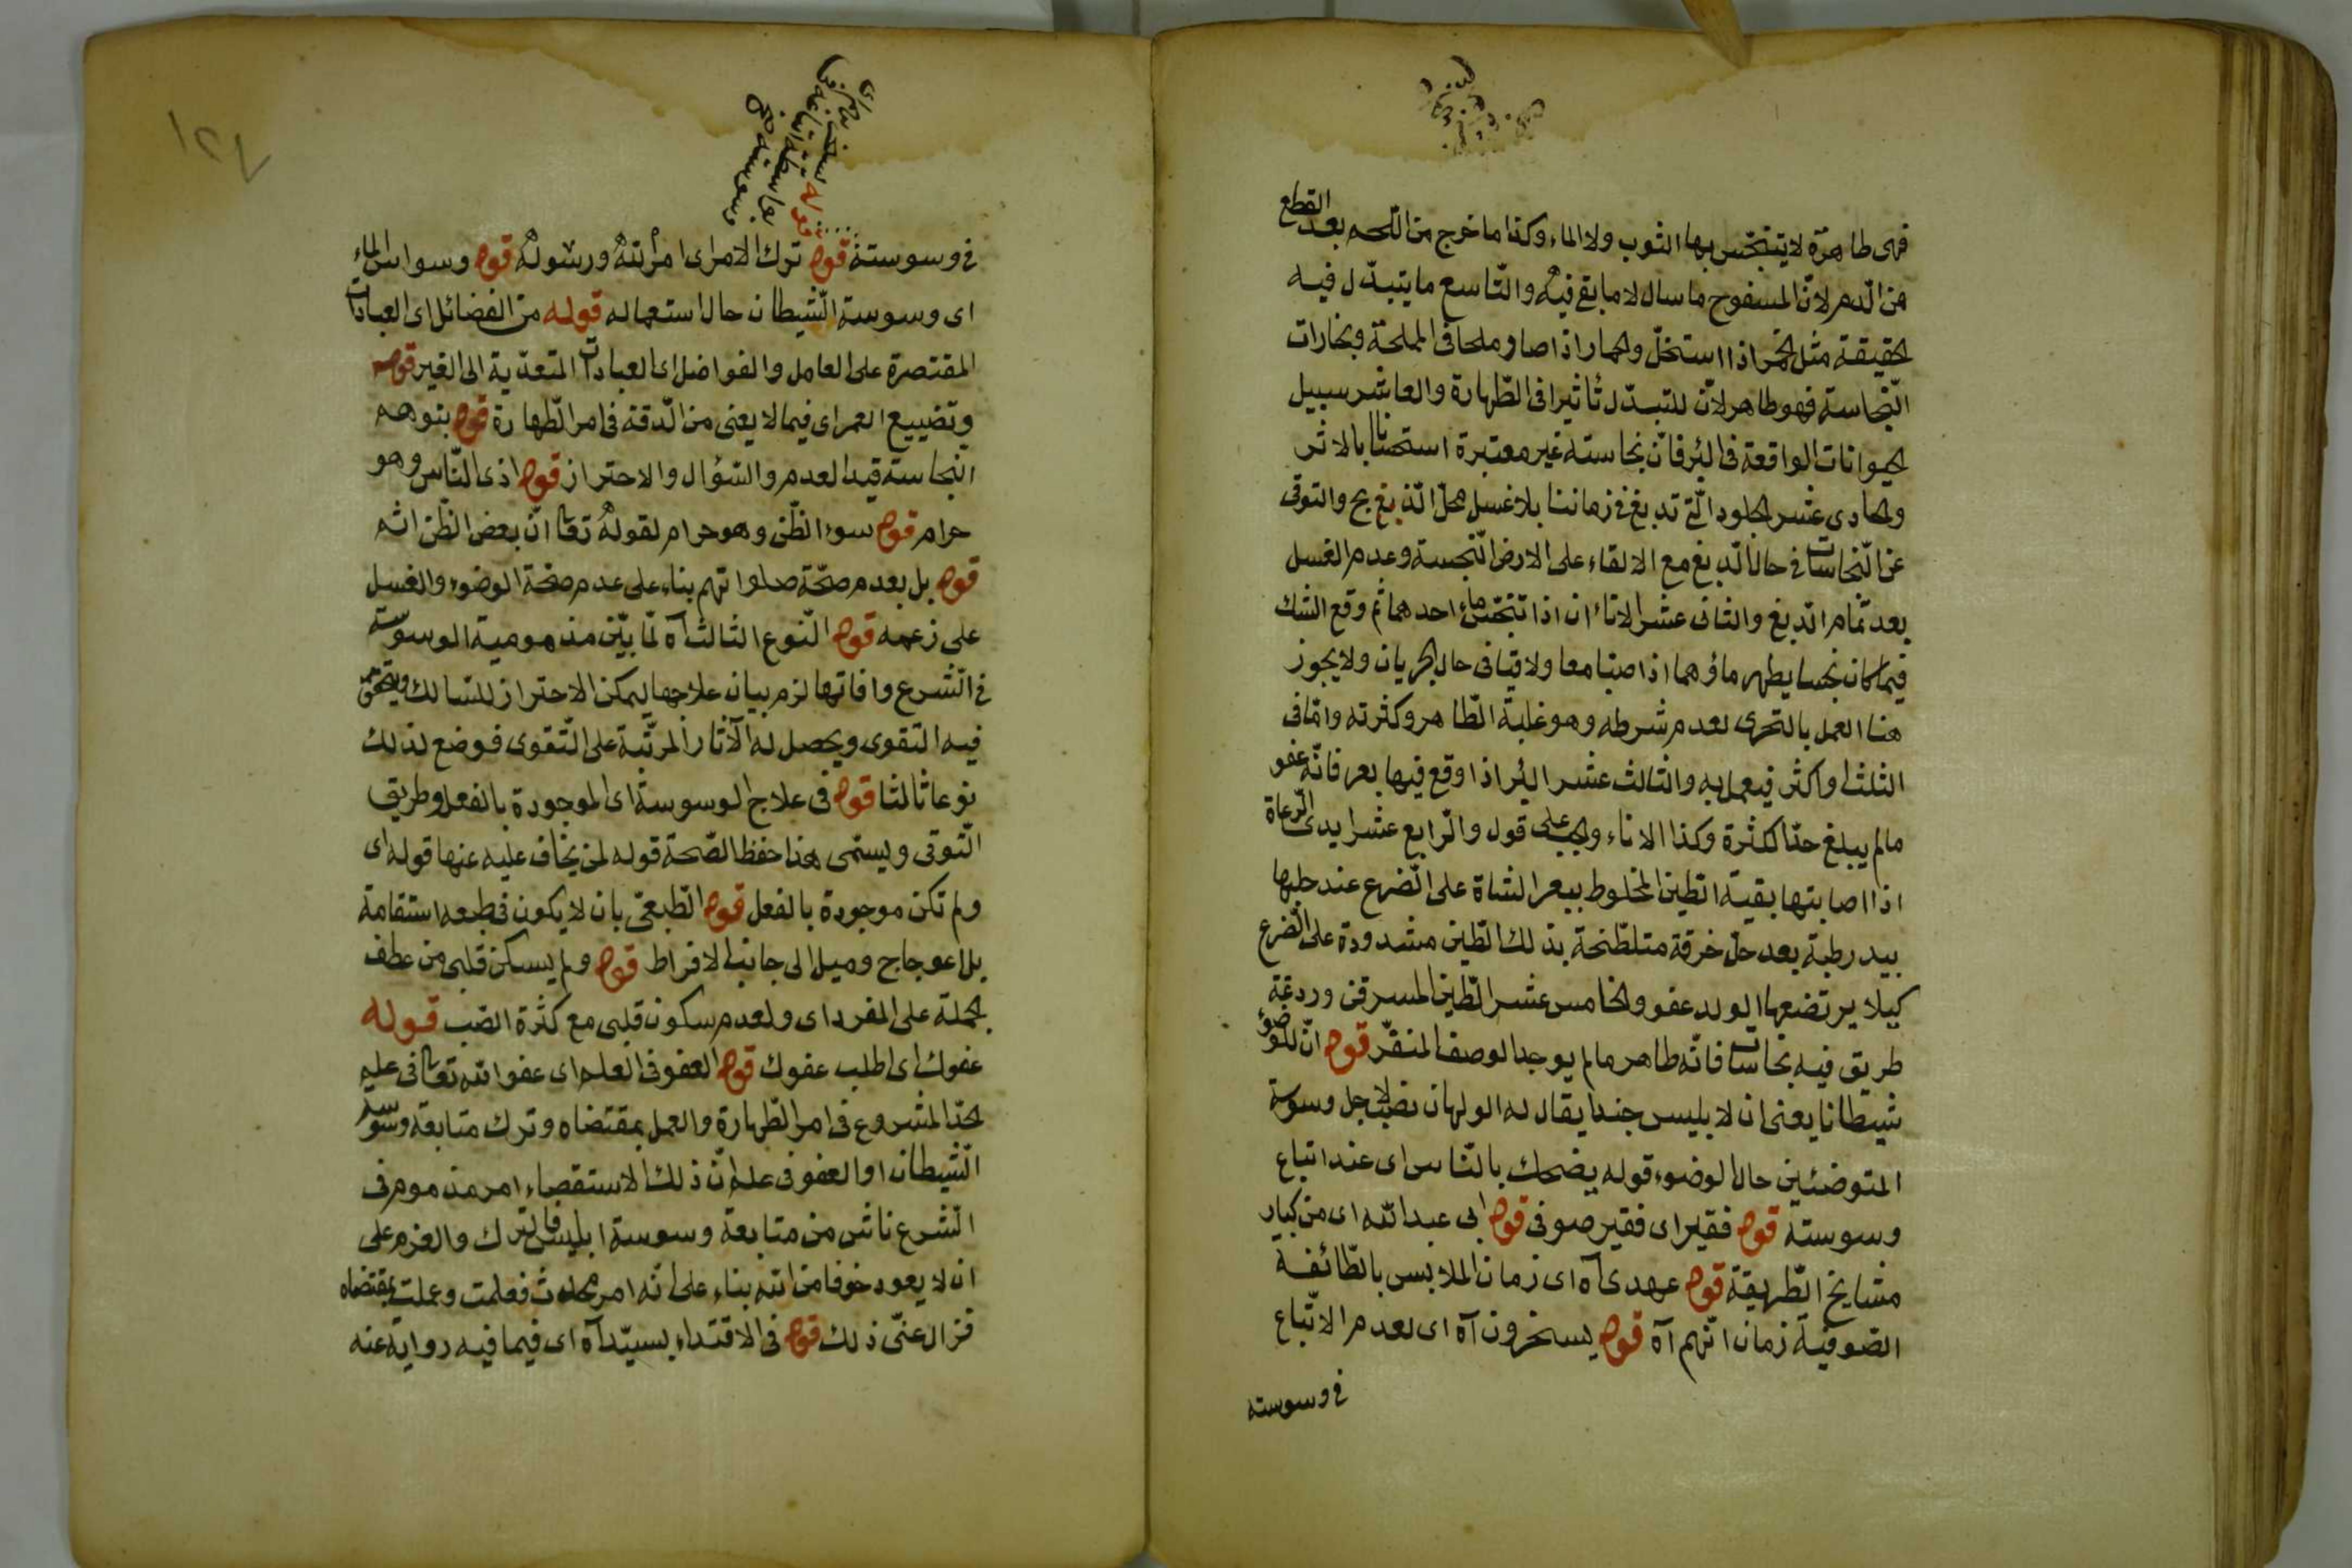 فهى طاهرة لا يتنجّس بها الثوب ولا الماء وكذا ما خرج من اللحم بعد القطع
من الدم لانّ المسفوح ما سال لا ما بقى فيه والتّاسع ما يتبدّل فيه
الحقيقة مثل الخمر اذا استخلّ والحمار اذا صار ملحا فى المملحة وبخارات
النّجاسة فهو طاهر لانّ للتبدّل تأثيرا فى الطّهارة والعاشر سبيل
الحيوانات الواقعة فى البئر فانّ نجاسته غير معتبرة استحسانا بالاثر
والحادى عشر الجلود الّتى تدبغ فى زماننا بلا غسل محلّ الذبغ بح والتوقى
عن النّجاسات فى حال الدّبغ مع الالقاء على الارض النّجسة وعدم الغسل
بعد تمام الدّبغ والثانى عشر الاناءان اذا تنجّس ماء احدهما ثم وقع الشك
فيما كان نجسا يطهر ماؤهما اذا صبّا معا ولاقيا فى حال الجريان ولا يجوز
هنا العمل بالتحرى لعدم شرطه وهو غلبة الطّاهر وكثرته وامّا فى
الثلث او اكثر فيعمل به والثالث عشر البئر اذا وقع فيها بعر فانّه عفو
مالم يبلغ حدّ الكثرة وكذا الاناء والجب على قول والرّابع عشر ايدى الرّعاة
اذا اصابتها بقيّة الطين المخلوط ببعر الشاة على الضّرع عند حلبها
بيد رطبة بعد حلّ خرقة متلطّخة بذلك الطين مشدودة على الضّرع
كيلا يرتضعها الولد عفو والخامس عشر الطّين المسرقن وردغة
طريق فيه نجاسات فانّه طاهر مالم يوجد الوصف المنفّر قوله انّ للوضوء
شيطانا يعنى ان لابليس جندا يقال له الولهان نصب لاجل وسوسة
المتوضئين حال الوضوء قوله يضحك بالنّاس اى عند اتباع
وسوسته قوله فقيرا اى فقير صوفى قوله ابى عبدالله اى من كبار
مشايخ الطّريقة قوله عهدى آه اى زمان الملابس بالطّائفة
الصّوفية زمان انّهم آه قوله يسخرون آه اى لعدم الاتّباع
فى وسوسته
١٢٧
فى وسوسته قوله ترك الامر اى امر الله ورسوله قوله وسواس الماء
اى وسوسة الشيطان حال استعماله قوله من الفضائل اى العبادات
المقتصرة على العامل والفواضل اى العبادات المتعدّية الى الغير قوله
وتضييع العمر اى فيما لا يعنى من الدّقة فى امر الطّهارة قوله بتوهم
النّجاسة قيد العدم والسّؤال والاحتراز قوله اذى النّاس وهو
حرام قوله سوء الظّن وهو حرام لقوله تعالى انّ بعض الظّن اثم
قوله بل بعدم صحّة صلواتهم بناء على عدم صحّة الوضوء والغسل
على زعمه قوله النّوع الثالث آه لمّا بيّن مذمومية الوسوسة
فى الشّرع وافاتها لزم بيان علاجها ليمكن الاحتراز للسّالك
فيه التقوى ويحصل له الآثار المرتّبة على التّقوى فوضع لذلك
نوعا ثالثا قوله فى علاج الوسوسة اى الموجودة بالفعل وطريق
التّوقى ويسمّى هذا حفظ الصّحة قوله لمن يخاف عليه عنها قوله اى
ولم تكن موجودة بالفعل قوله الطّبعىّ بان لا يكون فى طبعه استقامة
بل اعوجاج وميل الى جانب الافراط قوله ولم يسكن قلبى من عطف
الجملة على المفرد اى ولعدم سكون قلبى مع كثرة الصّب قوله
عفوك اى اطلب عفوك قوله العفو فى العلم اى عفو الله تعالى فى علم
الحدّ المشروع فى امر الطّهارة والعمل بمقتضاه وترك متابعة وسوسة
الشّيطان او العفو فى علم انّ ذلك الاستقصاء امر مذموم فى
الشّرع ناش من متابعة وسوسة ابليس فالترك والعزم على
ان لا يعود خوفا من الله بناء على انّه امر محدث فعلمت وعملت بمقتضاه
فزال عنّى ذلك قوله فى الاقتداء بسيّد آه اى فيما فيه رواية عنه